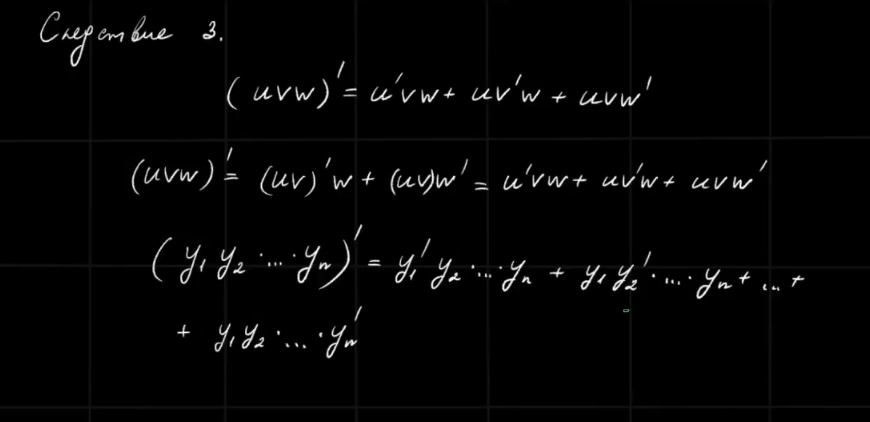 Следствие 3.
(uvw)' = u'vw + uv'w + uvw'
(uvw)' = (uv)'w + (uv)w' = u'vw + uv'w + uvw'
(y₁y₂·...·yₙ)' = y₁'y₂·...·yₙ + y₁y₂'·...·yₙ + ... +
+ y₁y₂·...·yₙ'